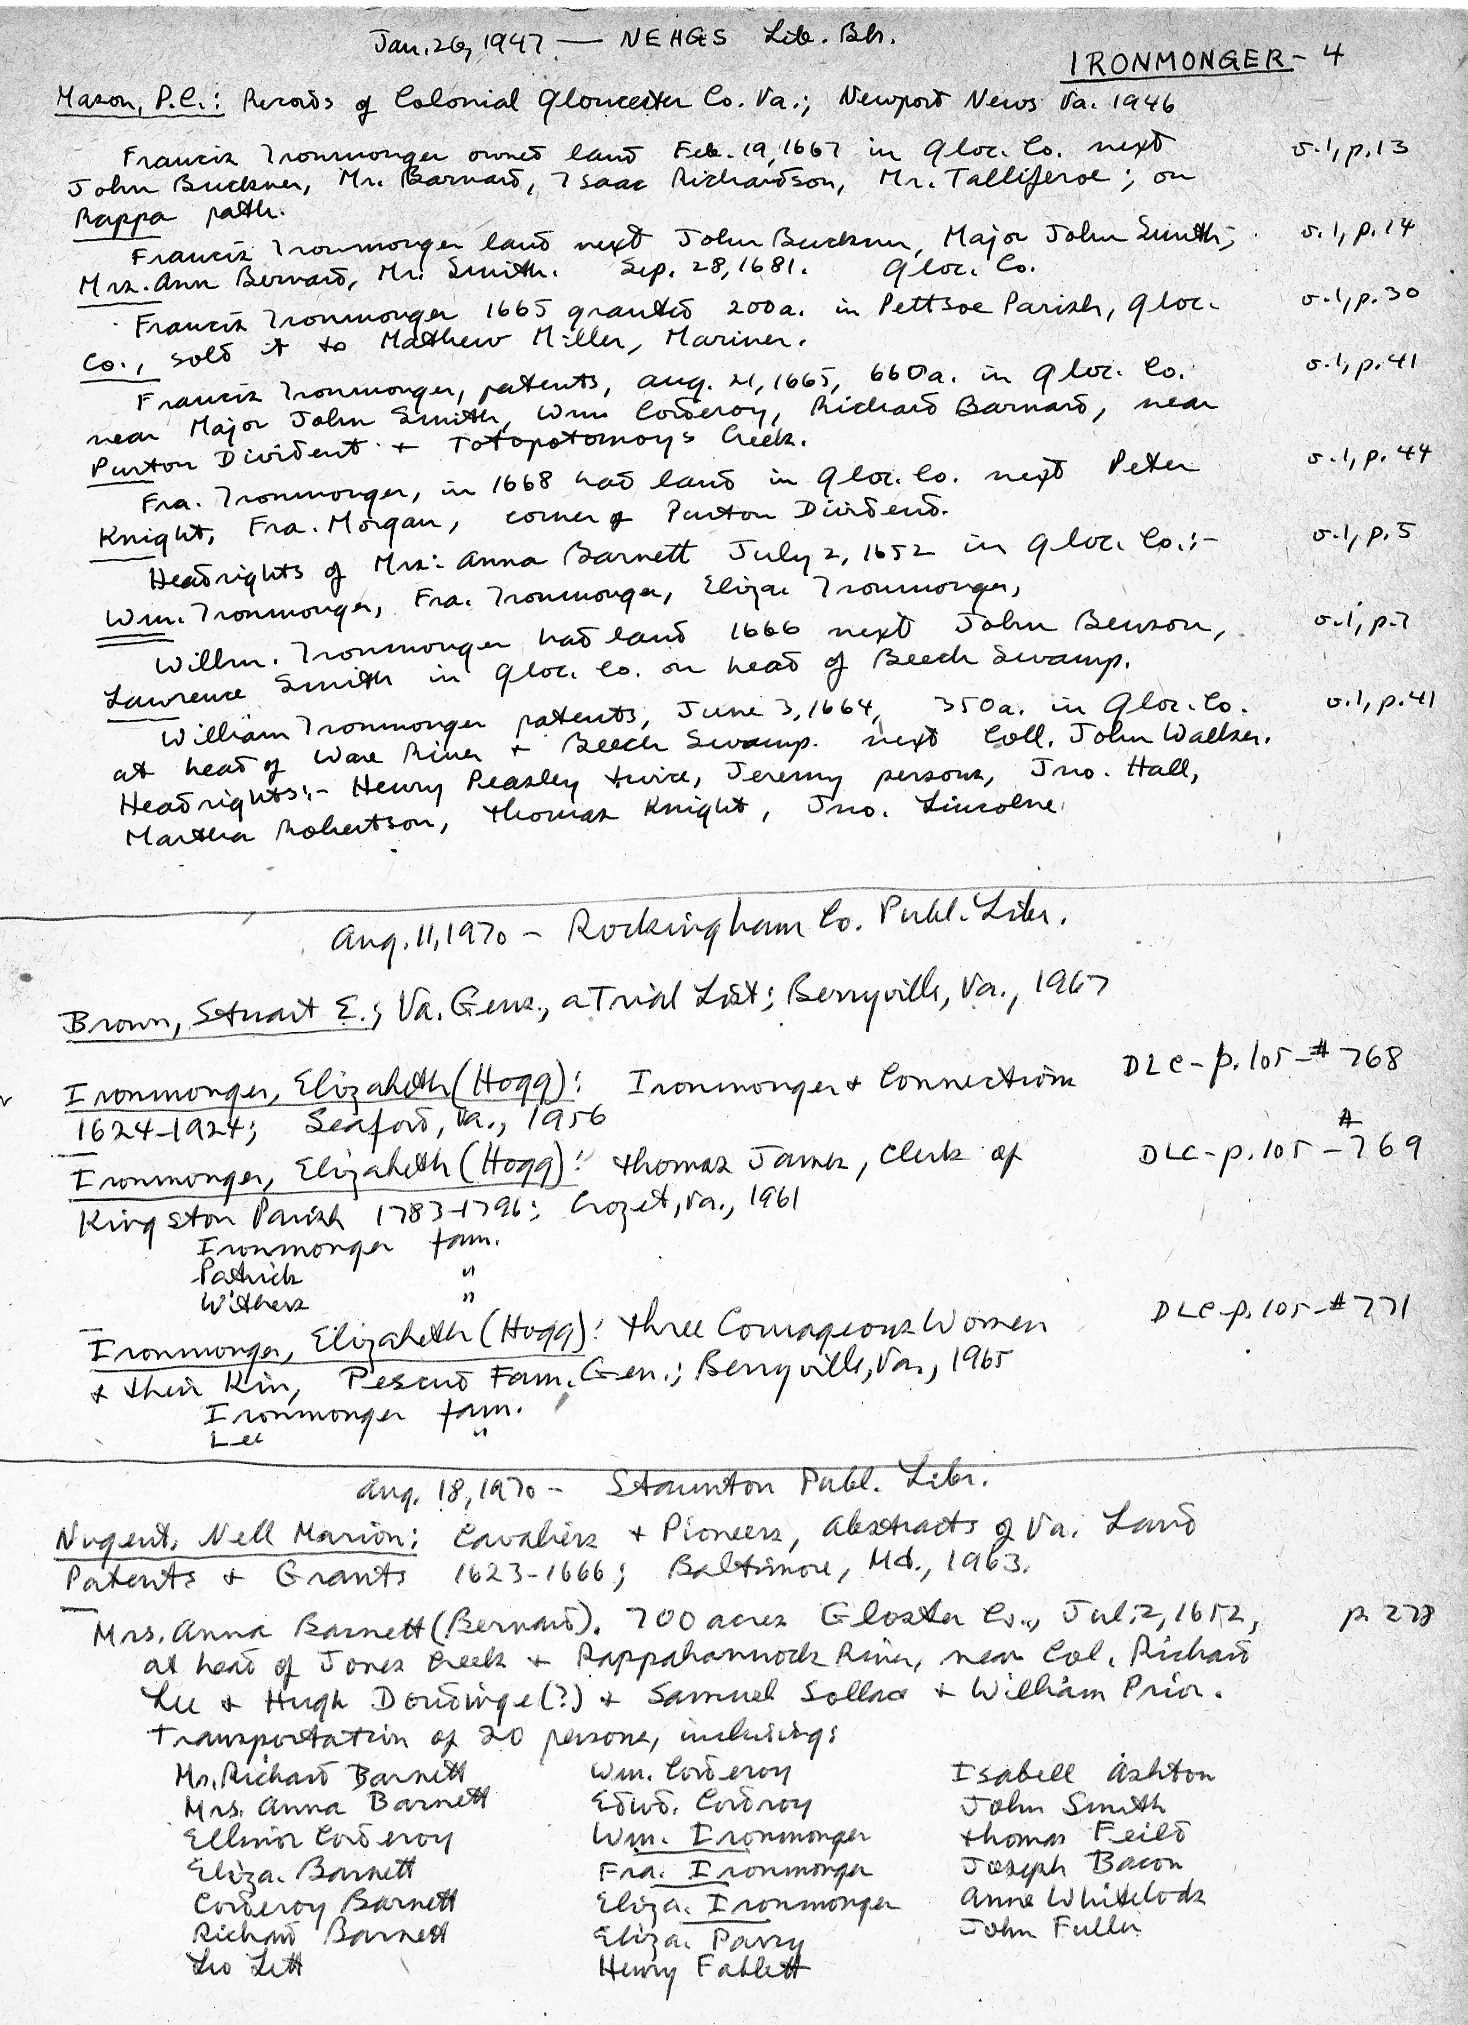 Jan. 26, 1947 — NEHGS Lib. Bk.
IRONMONGER - 4
Mason, P.C.: Records of Colonial Gloucester Co. Va.; Newport News Va. 1946
Francis Ironmonger owned land Feb. 19, 1667 in Gloc. Co. next v.1, p.13
John Buckner, Mr. Barnard, Isaac Richardson, Mr. Talliferoe; on
Rappa path.
Francis Ironmonger land next John Buckner, Major John Smith, v.1, p.14
Mrs. Ann Bernard, Mr. Smith. Sep. 28, 1681. Gloc. Co.
Francis Ironmonger 1665 granted 200a. in Pettsoe Parish, Gloc. v.1, p.30
Co., sold it to Mathew Miller, Mariner.
Francis Ironmonger, patents, Aug. 21, 1665, 660a. in Gloc. Co. v.1, p.41
near Major John Smith, Wm Corderoy, Richard Barnard, near
Purton Divident + Totopotomoys Creek.
Fra. Ironmonger, in 1668 had land in Gloc. Co. next Peter v.1, p.44
Knight, Fra. Morgan, corner of Purton Dividend.
Headrights of Mrs. Anna Barnett July 2, 1652 in Gloc. Co.:- v.1, p.5
Wm. Ironmonger, Fra. Ironmonger, Eliza. Ironmonger,
Willm. Ironmonger had land 1666 next John Benson, v.1, p.7
Lawrence Smith in Gloc. Co. on head of Beech Swamp.
William Ironmonger patents, June 3, 1664, 350a. in Gloc. Co. v.1, p.41
at head of Ware River + Beech Swamp. next Coll. John Walker.
Headrights:- Henry Peasley twice, Jeremy persons, Jno. Hall,
Martha Robertson, Thomas Knight, Jno. Lincolne
Aug. 11, 1970 - Rockingham Co. Publ. Libr.
Brown, Stuart E.; Va. Gens., a Trial List; Berryville, Va., 1967
Ironmonger, Elizabeth (Hogg): Ironmonger + Connections DLC - p.105 - #768
1624-1924; Seaford, Va., 1956
Ironmonger, Elizabeth (Hogg): Thomas James, Clerk of DLC - p.105 - #769
Kingston Parish 1783-1796; Crozet, Va., 1961
Ironmonger fam.
Patrick "
Withers "
Ironmonger, Elizabeth (Hogg): Three Courageous Women DLC - p.105 - #771
+ their Kin, Pescud Fam. Gen.; Berryville, Va., 1965
Ironmonger fam.
Lee "
Aug. 18, 1970 - Staunton Publ. Libr.
Nugent, Nell Marion: Cavaliers + Pioneers, Abstracts of Va. Land
Patents + Grants 1623-1666; Baltimore, Md., 1963.
Mrs. Anna Barnett (Bernard). 700 acres Gloster Co., Jul. 2, 1652, p. 278
at head of Jones Creek + Rappahannock River, near Col. Richard
Lee + Hugh Dowdinge (?) + Samuel Sollace + William Prior.
Transportation of 20 persons, including:
Mr. Richard Barnett Wm. Corderoy Isabell Ashton
Mrs. Anna Barnett Edwd. Cordroy John Smith
Ellinor Corderoy Wm. Ironmonger Thomas Feild
Eliza. Barnett Fra. Ironmonger Joseph Bacon
Corderoy Barnett Eliza. Ironmonger Anne Whitelock
Richard Barnett Eliza. Parry John Fuller
Leo Lett Henry Fablett